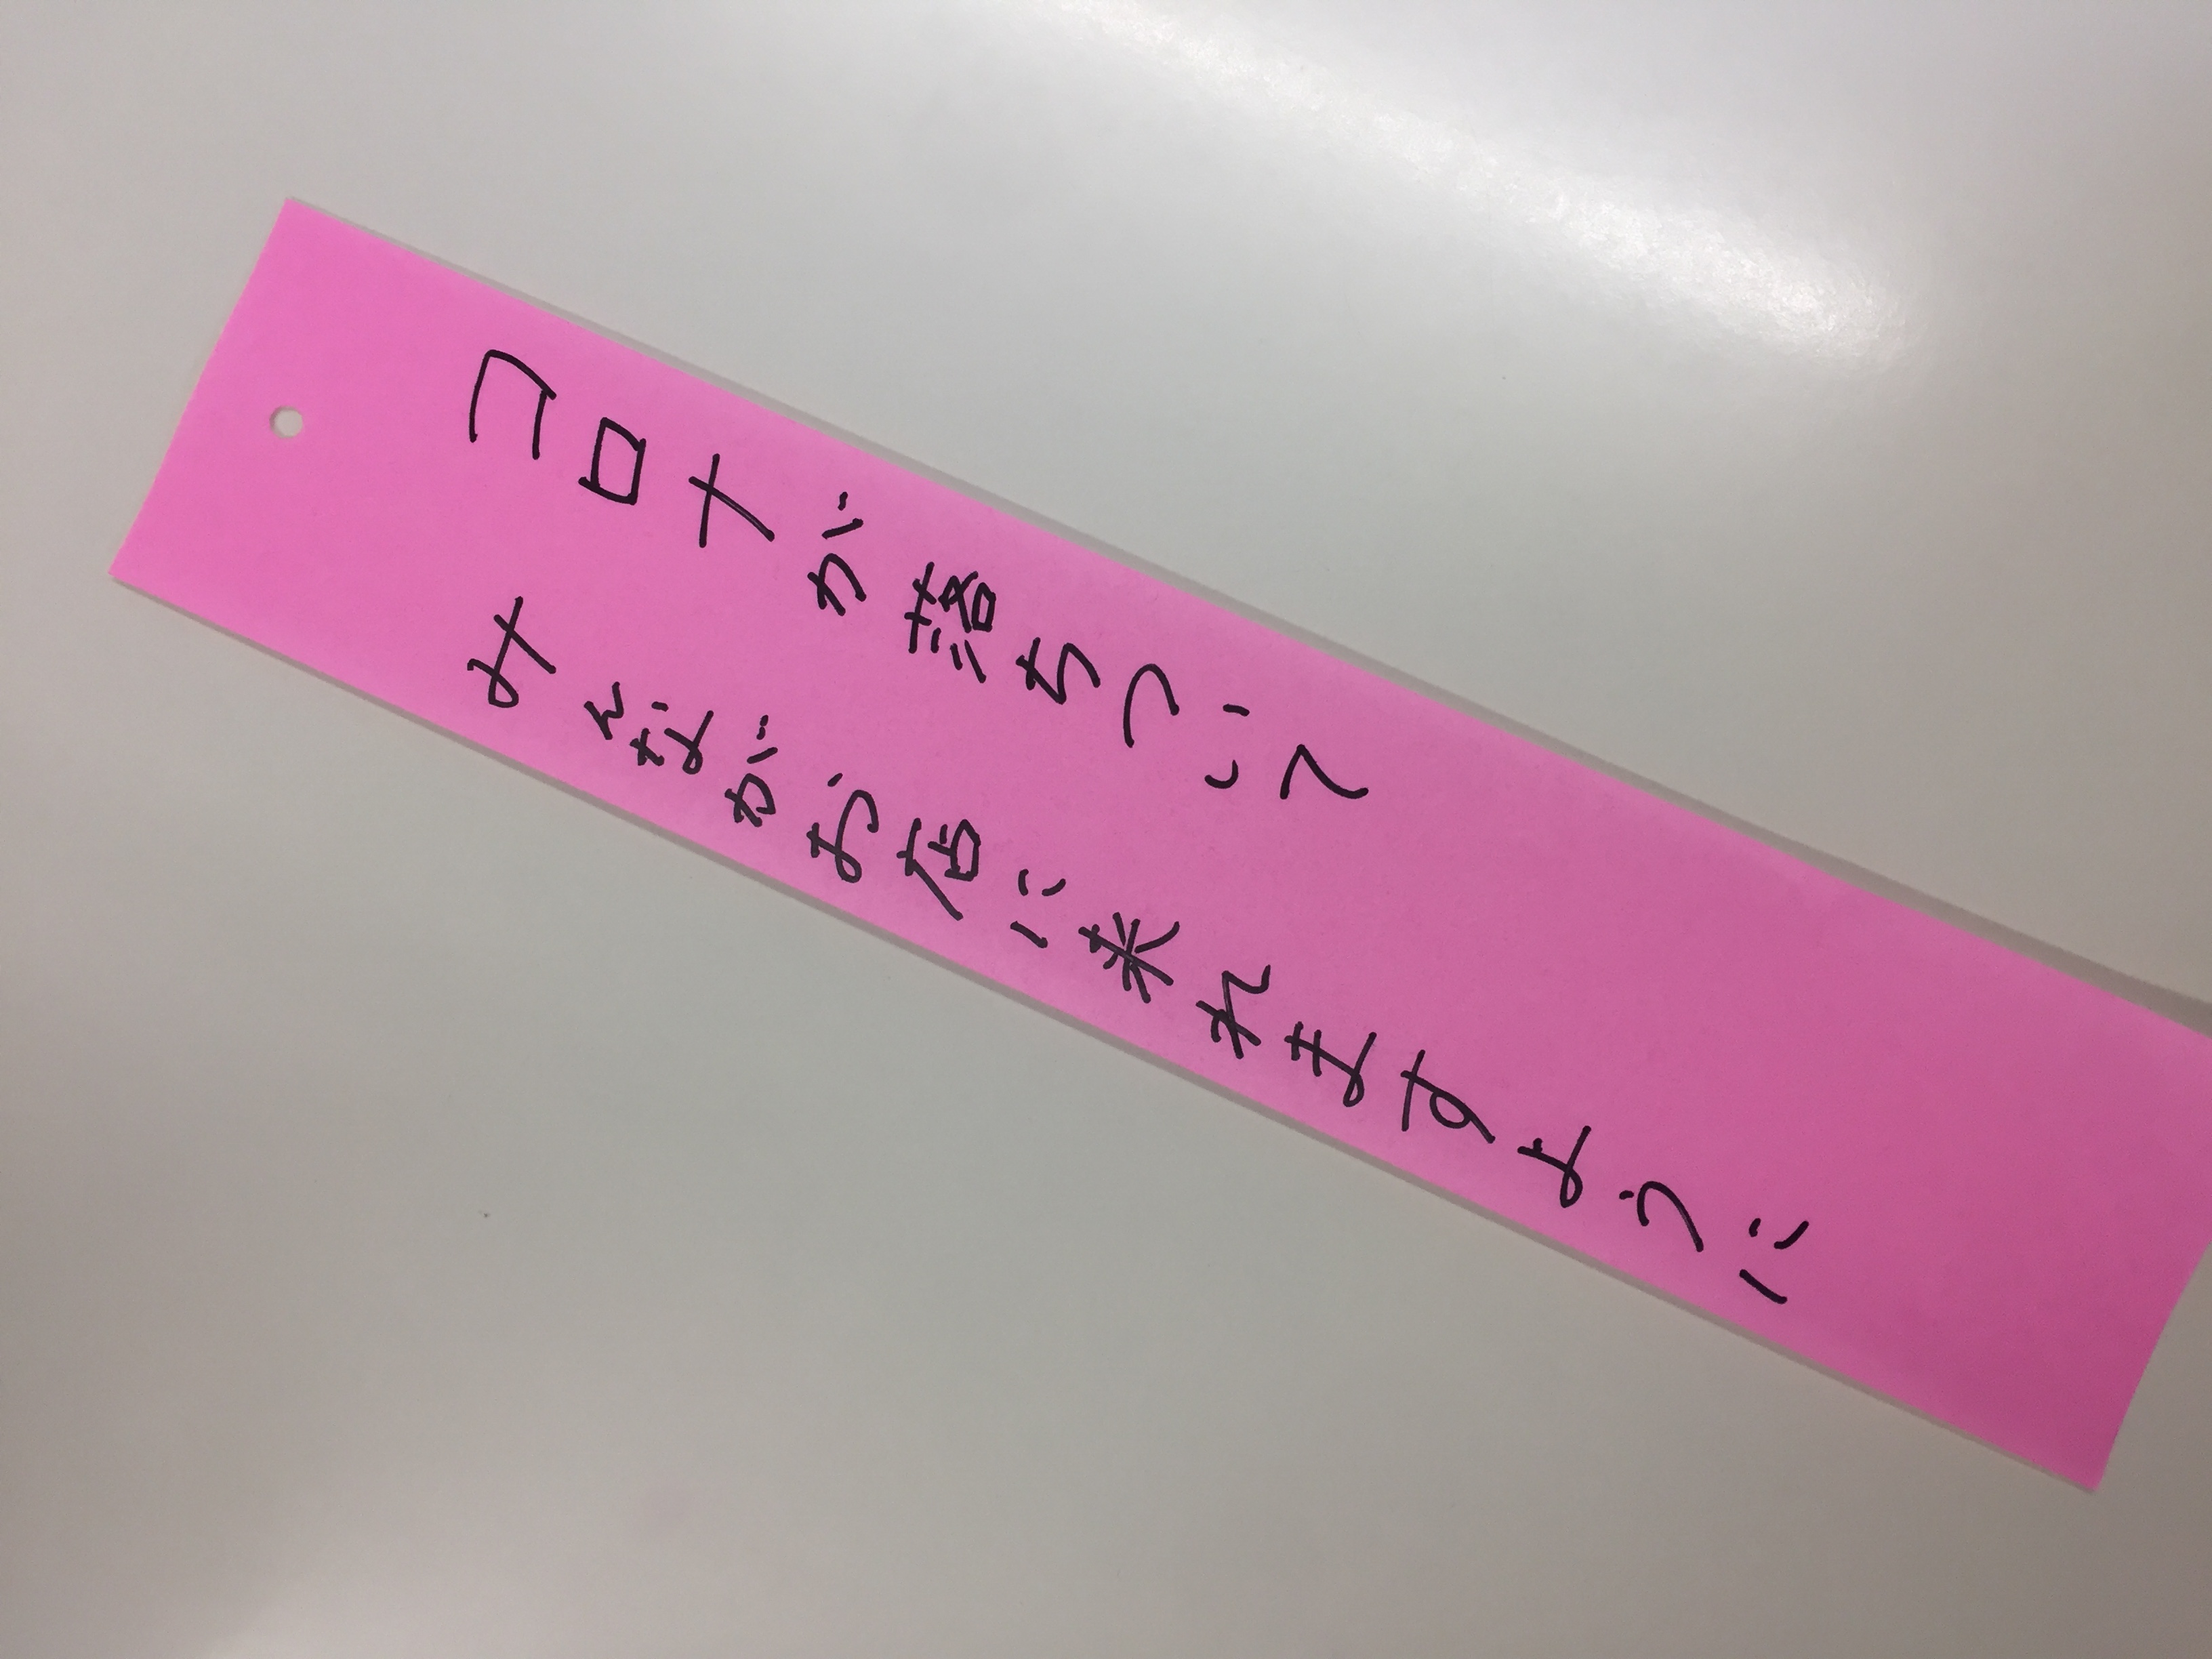 コロナが落ちついて
みんながお店に来れますように